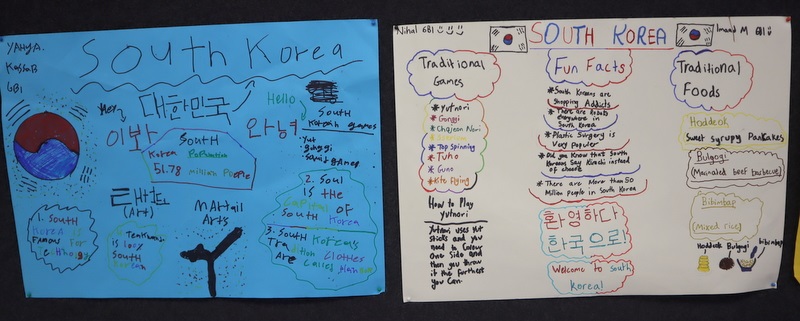 YAHYA.
6B1
South Korea
Hey
대한민국
이봐
Hello
안녕
South
Korean games
South
Korea Population
51.78 million People
(Art)
MARtail
Arts
1. South
Korea is
Famous For
TenKhundo
is 100%
South
Korean
2. Soul
IS the
Capital OF
South Korea
3. South Koreans
Tradition Clothes
Are Called Hanbok
Nihal 6B1
SOUTH KOREA
Imaad M 6B1
Traditional
Games
*Yutnori
*Gonggi
*Chajeon Nori
*Top Spinning
*Tuho
*Kite Flying
How to Play
Yutnori
Yutnori uses Yut
Sticks and you
need to Colour
One Side and
then you throw
it the furthest
you Can
Fun Facts
*South Koreans are
Shopping Addicts
*There are Robots
Everywhere in
South Korea
*Plastic Surgery is
Very Popular
*Did you Know that South
Koreans Say Kimchi instead
of cheese
*There are More than 50
Million People in South Korea
환영하다
한국으로!
Welcome to South
Korea!
Traditional
Foods
Hoddeok
Sweet Syrupy Pankakes
Bulgogi
(Marinated beef barbecue)
Bibimbap
(Mixed rice)
Hoddeok Bulgogi bibimbap